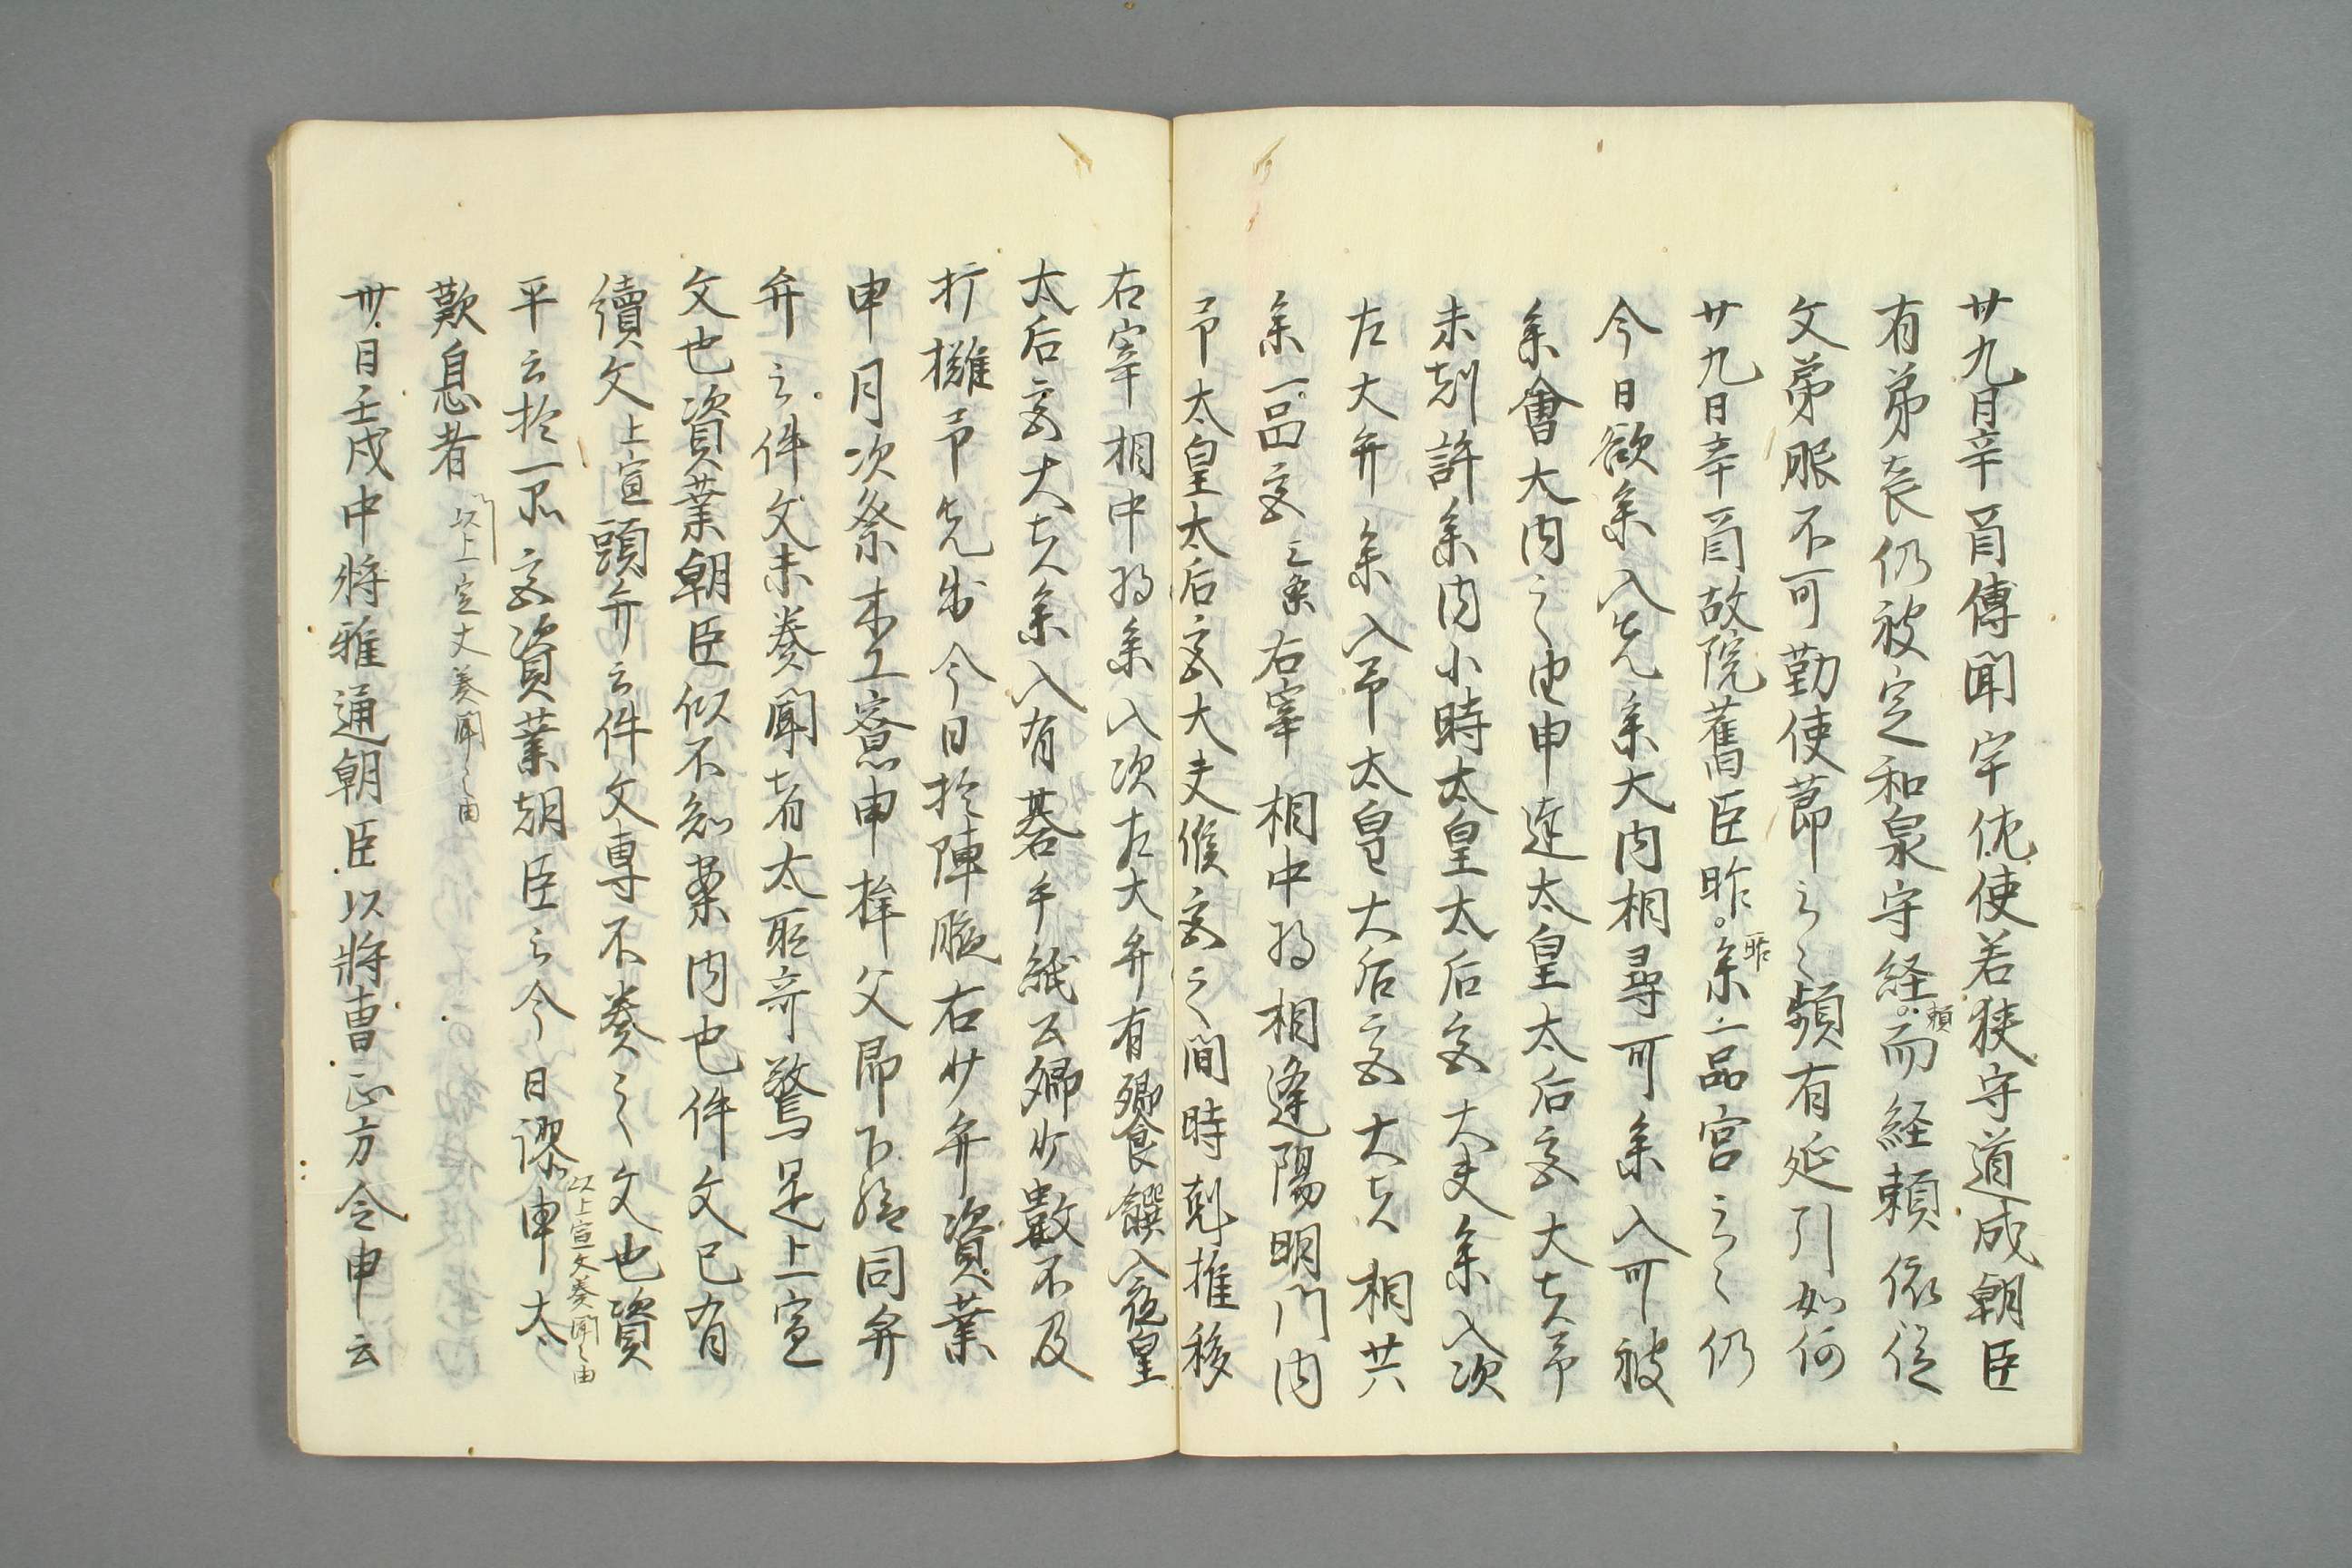 廿九日辛酉傳聞宇佐使若狭守道成朝臣
有弟喪仍被定和泉守経頼而経頼依従
父弟服不可勤使節云々頻有延引如何
廿九日辛酉故院舊臣昨昨参一品宮云々仍
今日欲参入先参大内相尋可参入可被
参會大内之由申達太皇太后宮大夫予
未剋許参内小時太皇太后宮大夫参入次
左大弁参入予太皇大后宮大夫相共
参一品宮三条右宰相中将相逢陽明門内
予太皇太后宮大夫候宮之間時剋推移
右宰相中将参入次左大弁有饗饌入夜皇
太后宮大夫参入有碁手紙公卿少數不及
打攤予先出今日於陣腋右少弁資業
申月次祭木工寮申桙文即下給同弁
弁云件文未奏聞者太所奇驚是上宣
文也資業朝臣似不知案内也件文已有
續文上宣頭弁云件文專不奏之文也資
以上宣文奏聞之由
平云於一品宮資業朝臣云今日謬申太
歎息者
以上宣文奏聞之由
卅日壬戌中将雅通朝臣以将曹正方令申云